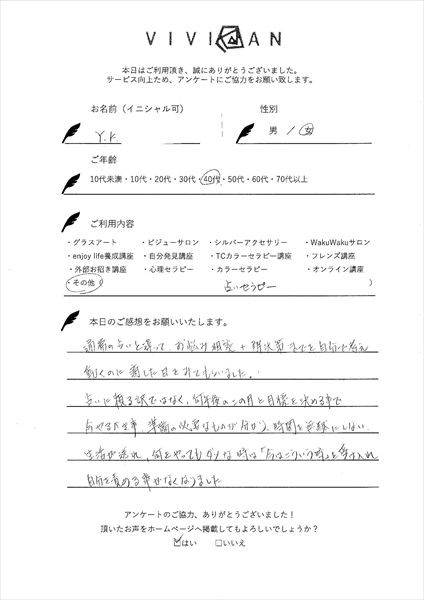 VIVI AN
本日はご利用頂き、誠にありがとうございました。
サービス向上ため、アンケートにご協力をお願い致します。
お名前（イニシャル可）
性別
Y.K
男 / 女
ご年齢
10代未満・10代・20代・30代・40代・50代・60代・70代以上
ご利用内容
・グラスアート ・ビジューサロン ・シルバーアクセサリー ・WakuWakuサロン
・enjoy life養成講座 ・自分発見講座 ・TCカラーセラピー講座 ・フレンズ講座
・外部お招き講座 ・心理セラピー ・カラーセラピー ・オンライン講座
・その他（ 占いセラピー ）
本日のご感想をお願いいたします。
通常の占いと違って、お悩み + までを自分で考え
動くのに適した日をみてもらいました。
占いに頼る訳ではなく、何年後のこの月と目標を決める事で
今やるべき事、準備の必要なものが分かり、時間を無駄にしない
生活が送れ、何をやってもダメな時は「今はこういう時」と受け入れ
自分を責める事がなくなりました
アンケートのご協力、ありがとうございました！
頂いたお声をホームページへ掲載してもよろしいでしょうか？
☑はい □いいえ